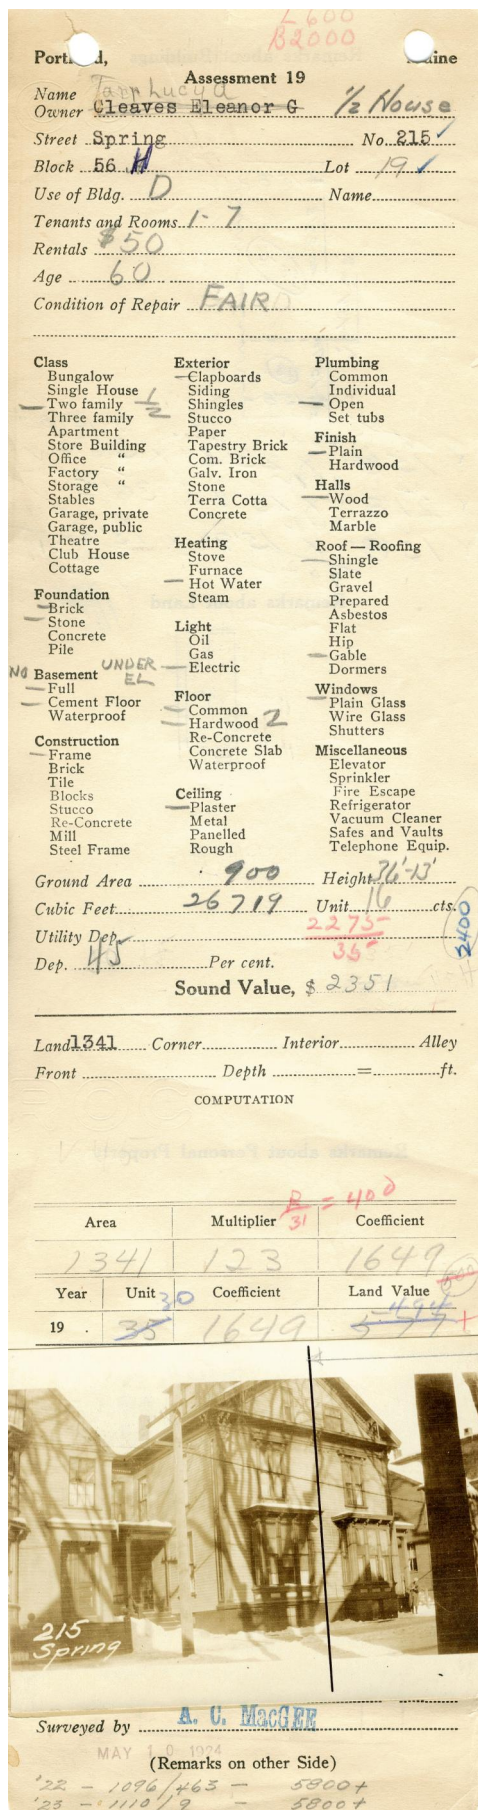 L 600
B2000
Portland, Maine
Assessment 19
Name Tarr Lucy A
Owner Cleaves Eleanor G 1/2 House
Street Spring No. 215
Block 56 H Lot 19
Use of Bldg. D Name
Tenants and Rooms 1-7
Rentals $50
Age 60
Condition of Repair FAIR
Class
Bungalow
Single House
Two family 1/2
Three family
Apartment
Store Building
Office "
Factory "
Storage "
Stables
Garage, private
Garage, public
Theatre
Club House
Cottage
Foundation
Brick
Stone
Concrete
Pile
NO Basement UNDER EL
Full
Cement Floor
Waterproof
Construction
Frame
Brick
Tile
Blocks
Stucco
Re-Concrete
Mill
Steel Frame
Exterior
Clapboards
Siding
Shingles
Stucco
Paper
Tapestry Brick
Com. Brick
Galv. Iron
Stone
Terra Cotta
Concrete
Heating
Stove
Furnace
Hot Water
Steam
Light
Oil
Gas
Electric
Floor
Common
Hardwood 2
Re-Concrete
Concrete Slab
Waterproof
Ceiling
Plaster
Metal
Panelled
Rough
Plumbing
Common
Individual
Open
Set tubs
Finish
Plain
Hardwood
Halls
Wood
Terrazzo
Marble
Roof — Roofing
Shingle
Slate
Gravel
Prepared
Asbestos
Flat
Hip
Gable
Dormers
Windows
Plain Glass
Wire Glass
Shutters
Miscellaneous
Elevator
Sprinkler
Fire Escape
Refrigerator
Vacuum Cleaner
Safes and Vaults
Telephone Equip.
Ground Area 900 Height 36'-13'
Cubic Feet 26719 Unit 16 cts.
2275
Utility Dep.
35
2400
Dep. 45 Per cent.
Sound Value, $ 2351
Land 1341 Corner Interior Alley
Front Depth = ft.
COMPUTATION
B/31 = 400
Area Multiplier Coefficient
1341 123 1649
Year Unit Coefficient Land Value
30 494
19 . 35 1649 577
215
Spring
Surveyed by A. C. MacGEE
MAY 10 1924
(Remarks on other Side)
'22 - 1096/463 - 5800+
'23 - 1110/9 - 5800+